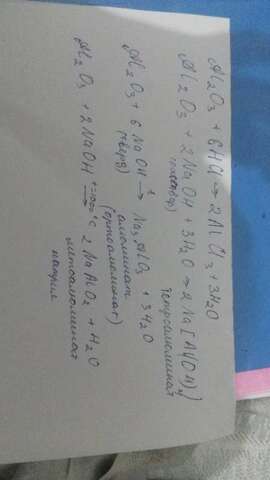 Al₂O₃ + 6HCl → 2AlCl₃ + 3H₂O
Al₂O₃ + 2NaOH + 3H₂O → 2Na[Al(OH)₄]
тетраалюминат
Al₂O₃ + 6NaOH →ᵗ Na₃AlO₃ + 3H₂O
(тверд) алюминат
(ортоалюминат)
Al₂O₃ + 2NaOH →ᵗ⁼¹⁰⁰⁰°ᶜ 2NaAlO₂ + H₂O
метаалюминат
натрия